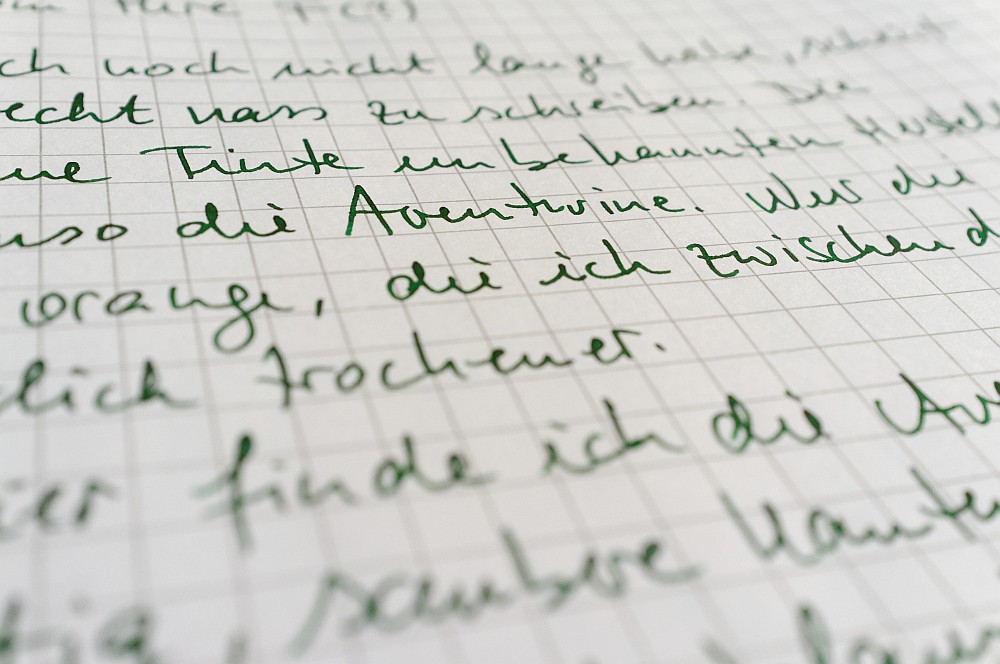 ch noch nicht lange habe, scheint
echt nass zu schreiben. Die
ne Tinte unbekannten
uso die Aventurine. Wer die
orange, die ich zwischend
lich trockener.
ier finde ich die Av
tig, saubere Kanten